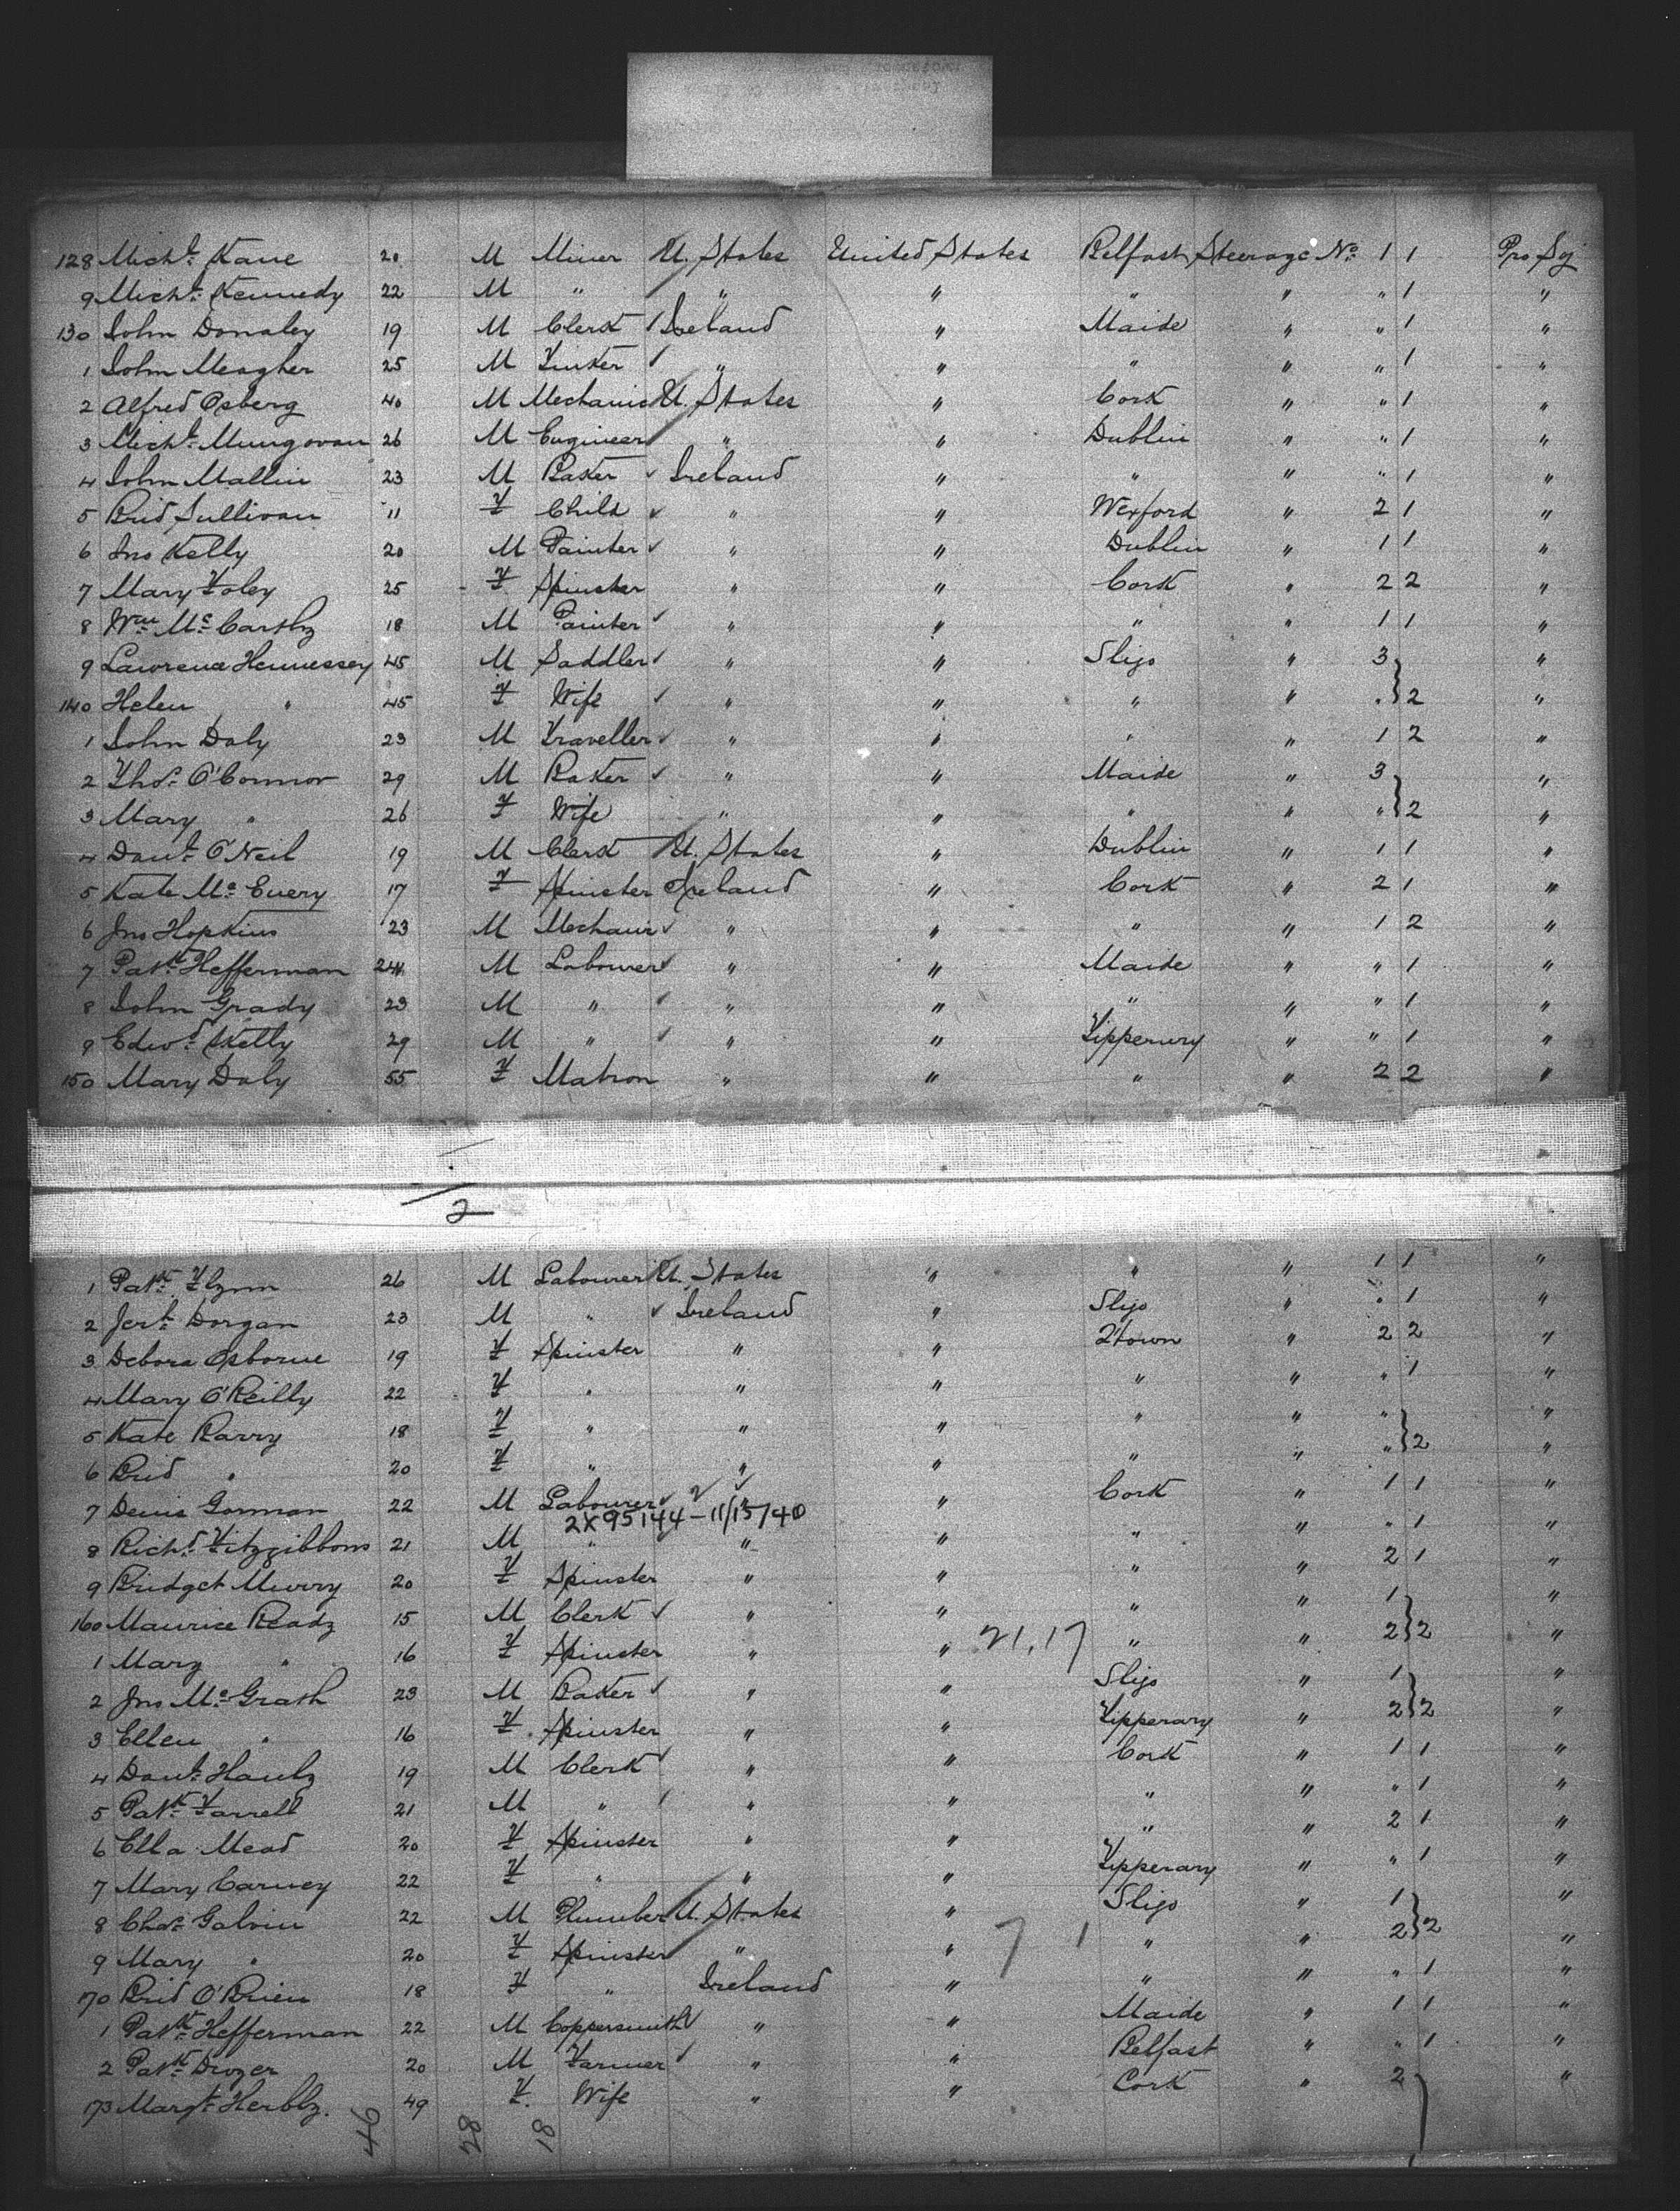 128 Michl. Kane 20 M Miner U. States United States Belfast Steerage No. 1 1 Pro Soj
9 Michl. Kennedy 22 M " " " " " " 1 "
130 John Donaley 19 M Clerk Ireland " Maide " " 1 "
1 John Meagher 25 M Tinker " " " " " 1 "
2 Alfred Osberg 40 M Mechanic U. States " Cork " " 1 "
3 Michl. Mungovan 26 M Engineer " " Dublin " " 1 "
4 John Mallin 23 M Baker Ireland " " " " 1 "
5 Brid Sullivan 11 F Child " " Wexford " 2 1 "
6 Jno Kelly 20 M Painter " " Dublin " 1 1 "
7 Mary Foley 25 F Spinster " " Cork " 2 2 "
8 Wm. Mc. Carthy 18 M Painter " " " " 1 1 "
9 Lawrence Hennessey 45 M Saddler " " Sligo " 3 "
140 Helen " 45 F Wife " " " " " 2 "
1 John Daly 23 M Traveller " " " " 1 2 "
2 Thos. O'Connor 29 M Baker " " Maide " 3 "
3 Mary " 26 F Wife " " " " " 2 "
4 Danl. O'Neil 19 M Clerk U. States " Dublin " 1 1 "
5 Kate Mc. Every 17 F Spinster Ireland " Cork " 2 1 "
6 Jno Hopkins 23 M Mechanic " " " " 1 2 "
7 Patk. Hefferman 24 M Labourer " " Maide " " 1 "
8 John Grady 23 M " " " " " " 1 "
9 Edwd. Kelly 29 M " " " Tipperary " " 1 "
150 Mary Daly 55 F Matron " " " " 2 2 "
2
1 Patk. Flynn 26 M Labourer U. States " " " 1 1 "
2 Jerh. Dorgan 23 M " Ireland " Sligo " " 1 "
3 Debora Osborne 19 F Spinster " " Q'town " 2 2 "
4 Mary O'Reilly 22 F " " " " " " 1 "
5 Kate Barry 18 F " " " " " " "
6 Brid " 20 F " " " " " " 2 "
7 Denis Gorman 22 M Labourer " " Cork " 1 1 "
2X95144-11/15/40
8 Richd. Fitzgibbons 21 M " " " " " " 1 "
9 Bridget Murry 20 F Spinster " " " " 2 1 "
160 Maurice Ready 15 M Clerk " " " " 1 "
1 Mary " 16 F Spinster " " 21,17 " " 2 2 "
2 Jno Mc. Grath 23 M Baker " " Sligo " 1 "
3 Ellen " 16 F Spinster " " Tipperary " 2 2 "
4 Danl. Hanly 19 M Clerk " " Cork " 1 1 "
5 Patk. Farrell 21 M " " " " " " 1 "
6 Ella Mead 20 F Spinster " " " " 2 1 "
7 Mary Carney 22 F " " " Tipperary " " 1 "
8 Chas. Galvin 22 M Plumber U. States " Sligo " 1 "
9 Mary " 20 F Spinster " " 7 1 " " 2 2 "
170 Brid O'Brien 18 F " Ireland " " " " 1 "
1 Patk. Hefferman 22 M Coppersmith " " Maide " 1 1 "
2 Patk. Dwyer 20 M Farmer " " Belfast " " 1 "
173 Margt. Herbly. 49 F Wife " " Cork " 2 "
46 28 18